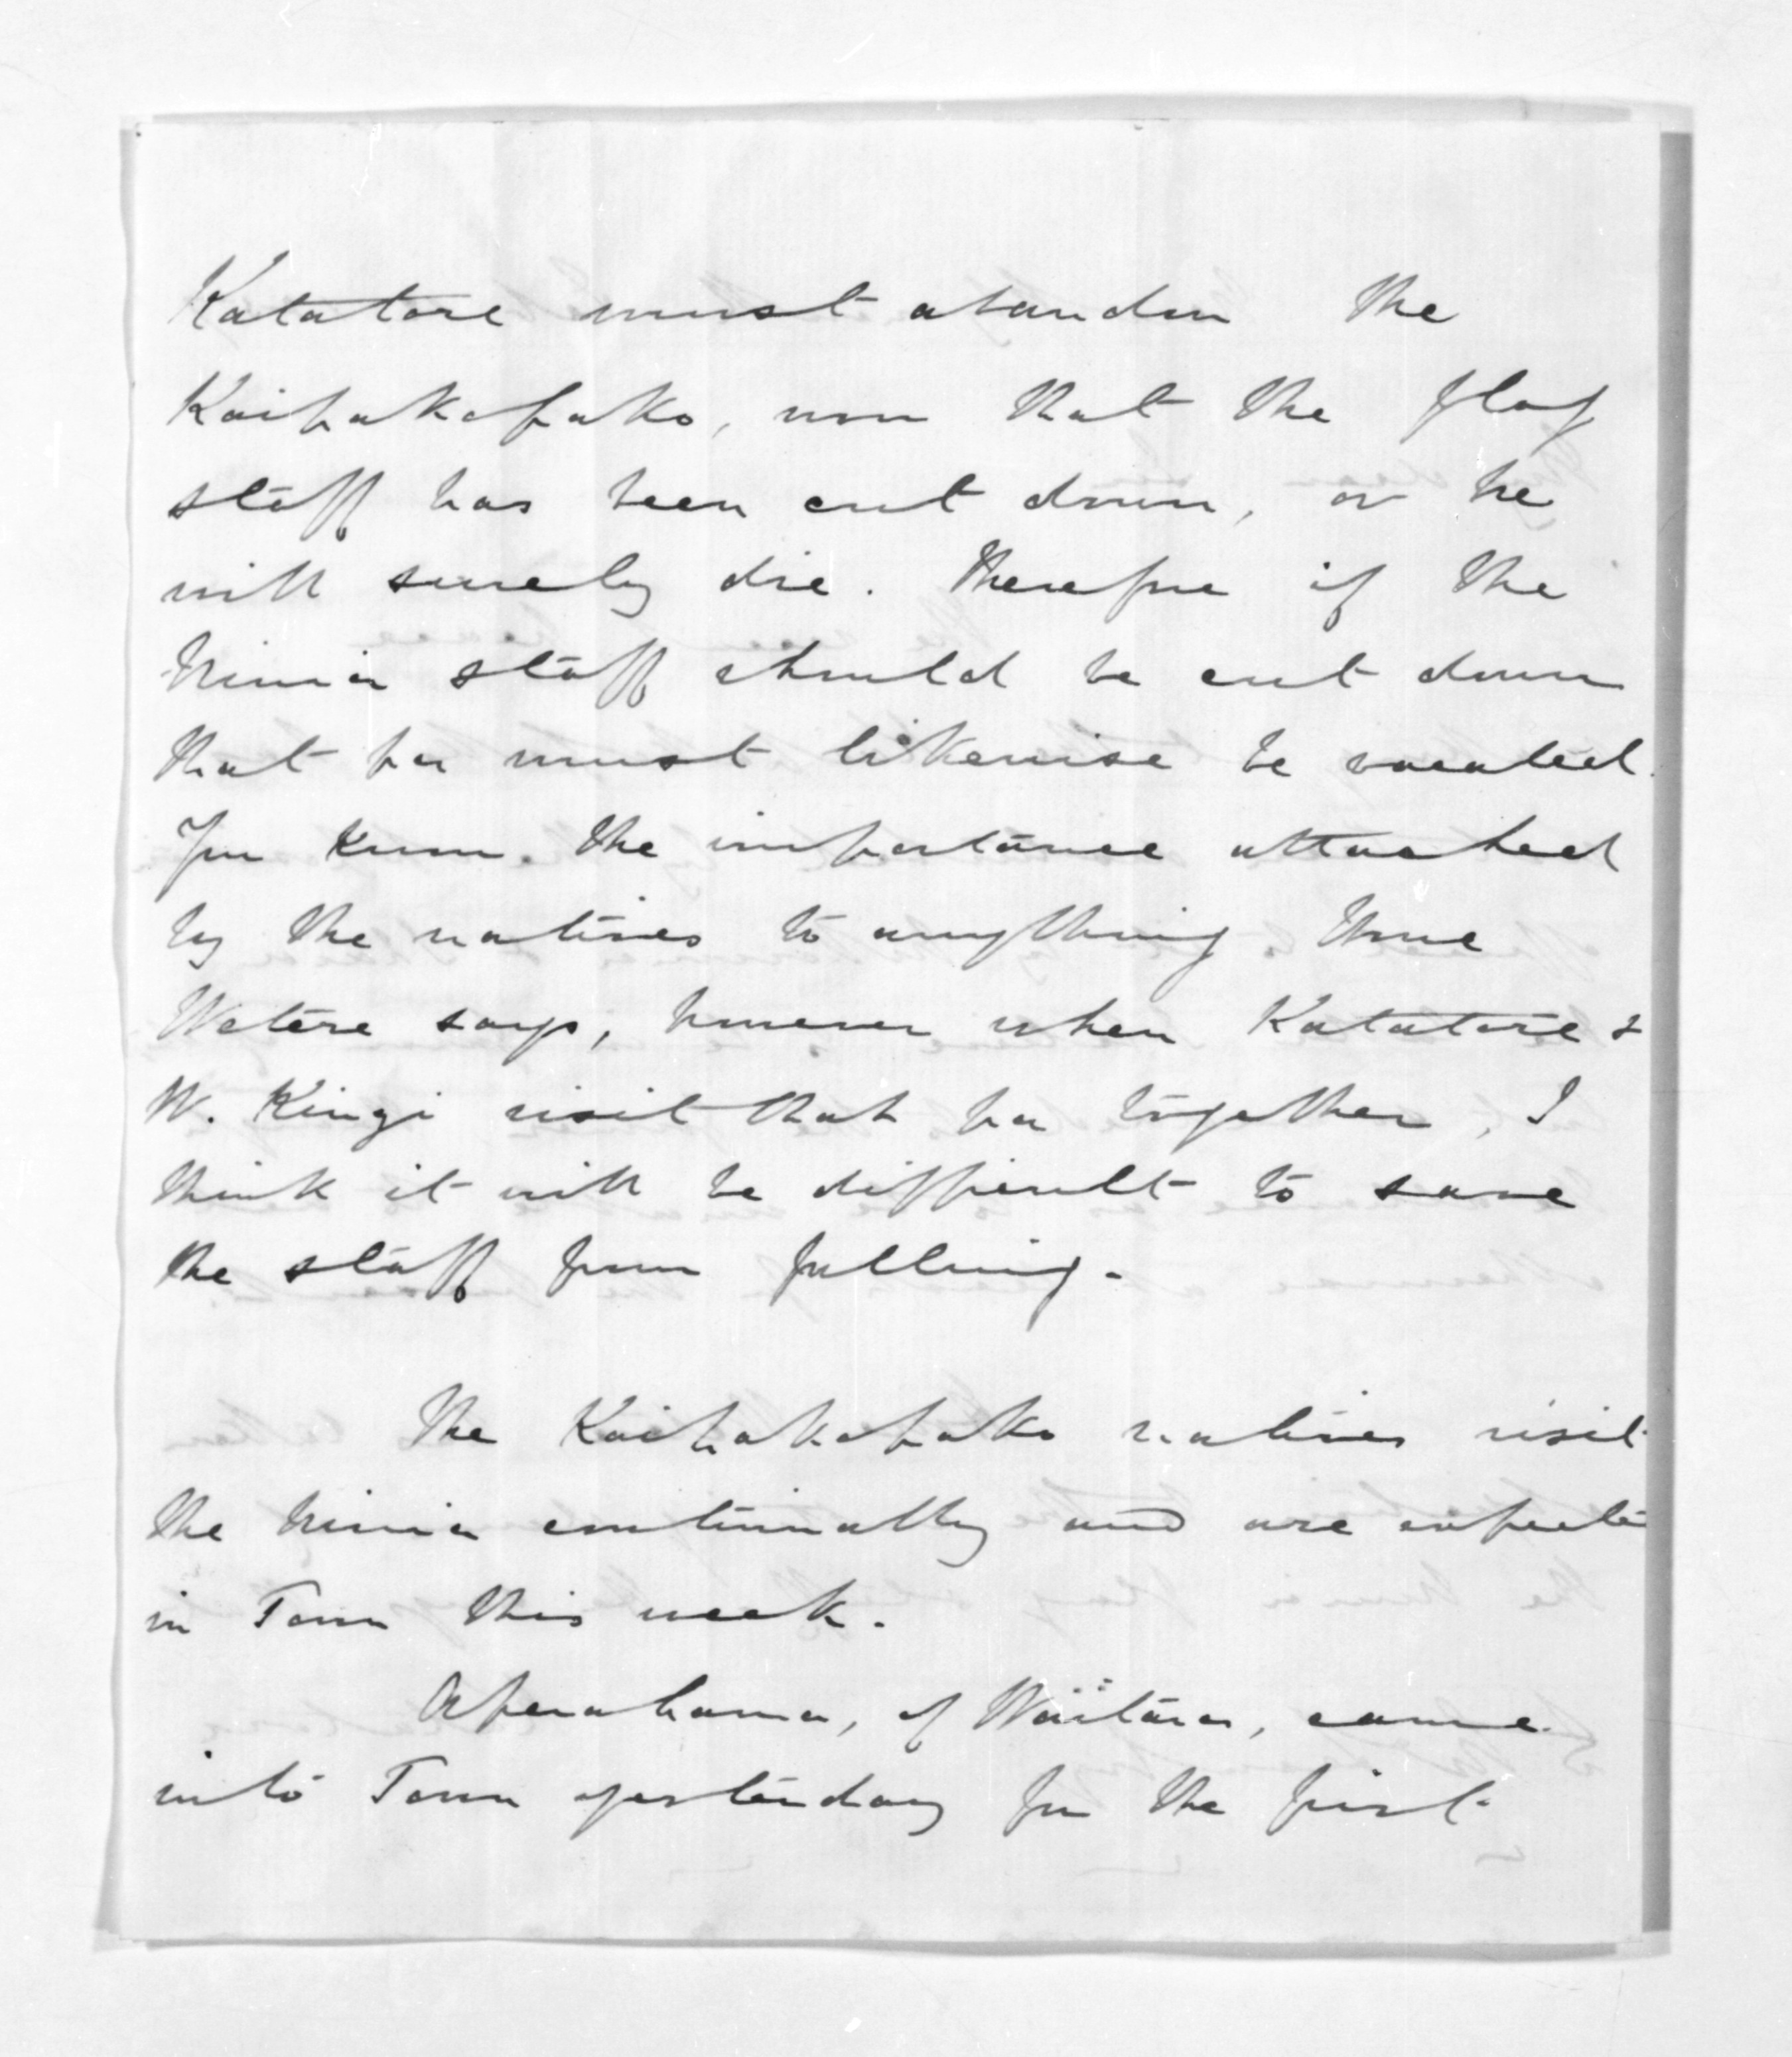 Katatore must abandon the
Kaipakopako, now that the flag
staff has been cut down, or he
will surely die. Therefore if the
Ninia staff should be cut down
that pa must likewise be vacated.
You know the importance attached
by the natives to anything
Watere says, however when Katatore &
W. Kingi visit that pa together, I
think it will be difficult to save
the staff from falling.
The Kaipakopako natives visit
the Ninia continually and are expected
in Town this week.
Aperahama, of Waitara, came
into Town yesterday for the first